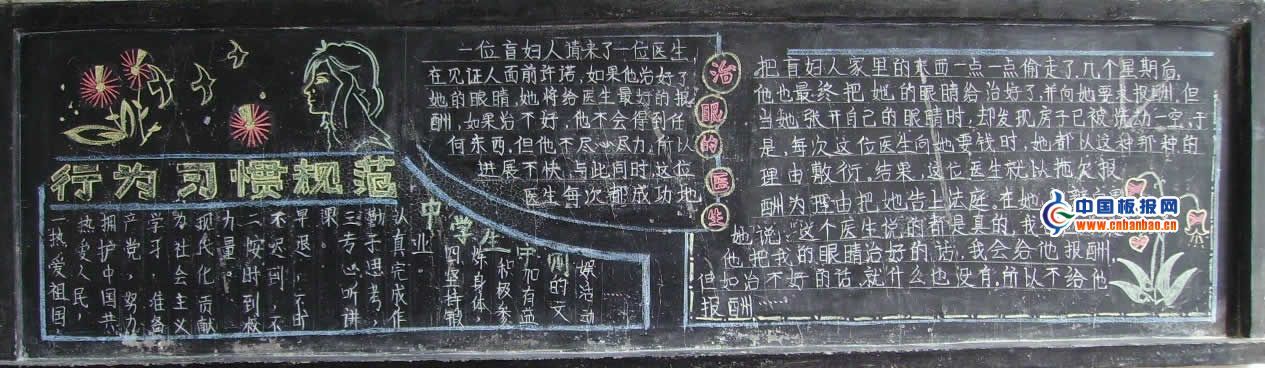 行为习惯规范
一热爱祖国,
热爱人民,
拥护中国共
产党,努力
学习 准备
为社会主义
现代化贡献
力量。
二按时到校
不迟到 不
早退
三专心听讲
勤于思考,
认真完成作
业。
四坚持锻
炼身体
积极参
加有益
的文
娱活动
中学生
一位盲妇人请来了一位医生,
在见证人面前许诺,如果他治好了
她的眼睛,她将给医生最好的报
酬,如果治不好,他不会得到任
何东西,但他不尽心尽力,所以
进展不快,与此同时,这位
医生每次都成功地
治眼的医生
把盲妇人家里的东西一点一点偷走了,几个星期后,
他也最终把她的眼睛给治好了,并向她要求报酬,但
当她张开自己的眼睛时,却发现房子已被洗劫一空,于
是,每次这位医生向她要钱时,她都以这种那种的
理由敷衍,结果,这位医生就以拖欠报
酬为理由把她告上法庭,在她
她说:"这个医生说的都是真的,我
他,把我的眼睛治好的话,我会给他报酬,
但如治不好的话,就什么也没有,所以不给他
报酬……
中国板报网
www.cnbanbao.cn